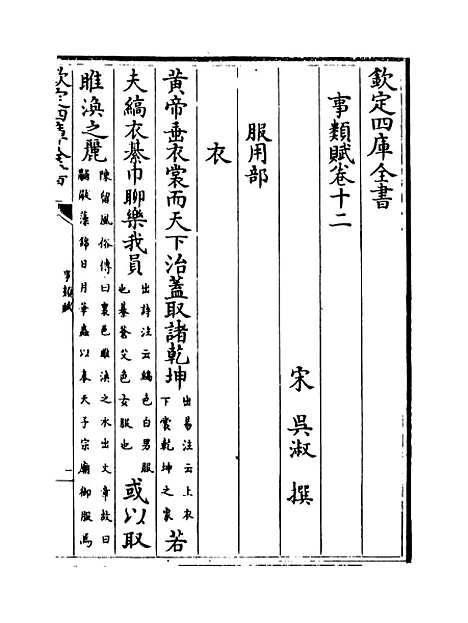 欽定四庫全書
事類賦卷十二
宋 吳淑 撰
服用部
衣
黃帝垂衣裳而天下治蓋取諸乾坤出易注云上衣下裳乾坤之象若
夫縞衣綦巾聊樂我員出詩注云縞色白男服也綦蒼艾色女服也或以取
睢渙之麗陳留風俗傳曰襄邑睢渙之水出文章故曰黼黻藻錦日月華蟲以奉天子宗廟御服焉
欽定四庫全書
事類賦
一